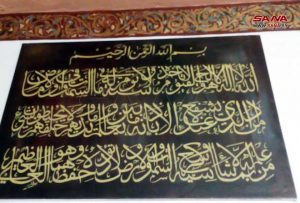 SANA
بسم الله الرحمن الرحيم
الله لا إله إلا هو الحي القيوم لا تأخذه سنة ولا نوم له ما في السموات وما في الأرض
من ذا الذي يشفع عنده إلا بإذنه يعلم ما بين أيديهم وما خلفهم ولا يحيطون بشيء
من علمه إلا بما شاء وسع كرسيه السموات والأرض ولا يؤده حفظهما وهو العلي العظيم